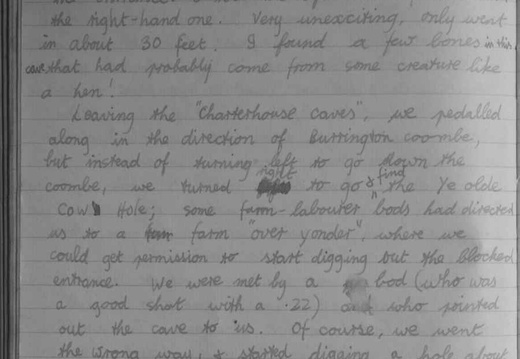 the right-hand one. Very unexciting, only went
in about 30 feet. I found a few bones in this
cave that had probably come from some creature like
a hen!
Leaving the "Charterhouse caves", we pedalled
along in the direction of Burrington coombe,
but instead of turning left to go down the
coombe, we turned right to go & find the Ye olde
Cow Hole; some farm-labourer bods had directed
us to a farm "over yonder", where we
could get permission to start digging out the blocked
entrance. We were met by a bod (who was
a good shot with a .22) and who pointed
out the cave to us. Of course, we went
the wrong way, & started digging a hole about